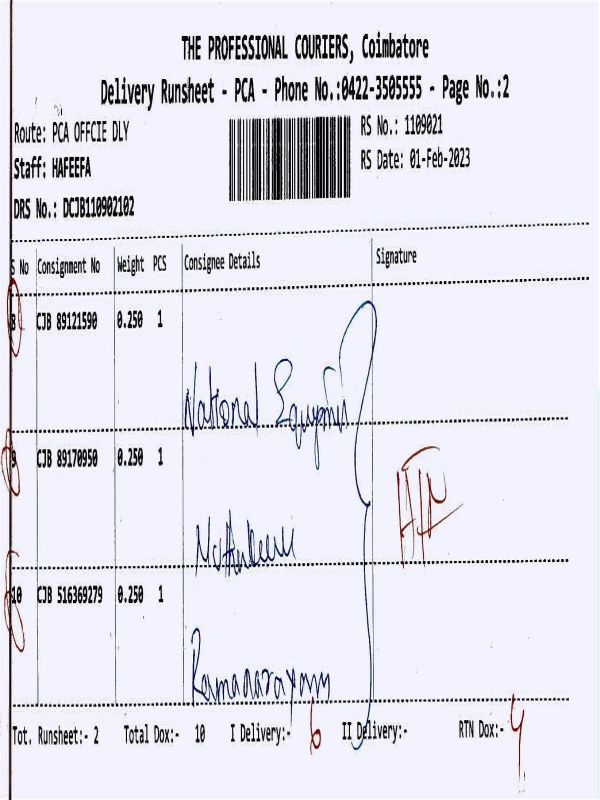 THE PROFESSIONAL COURIERS, Coimbatore
Delivery Runsheet - PCA - Phone No.:0422-3505555 - Page No.:2
Route: PCA OFFCIE DLY
RS No.: 1109021
Staff: HAFEEFA
RS Date: 01-Feb-2023
DRS No.: DCJB110902102
S No Consignment No Weight PCS Consignee Details Signature
8 CJB 89121590 0.250 1
National
9 CJB 89170950 0.250 1
10 CJB 516369279 0.250 1
Ramanarayanan
Tot. Runsheet:- 2 Total Dox:- 10 I Delivery:- 6 II Delivery:- RTN Dox:- 4